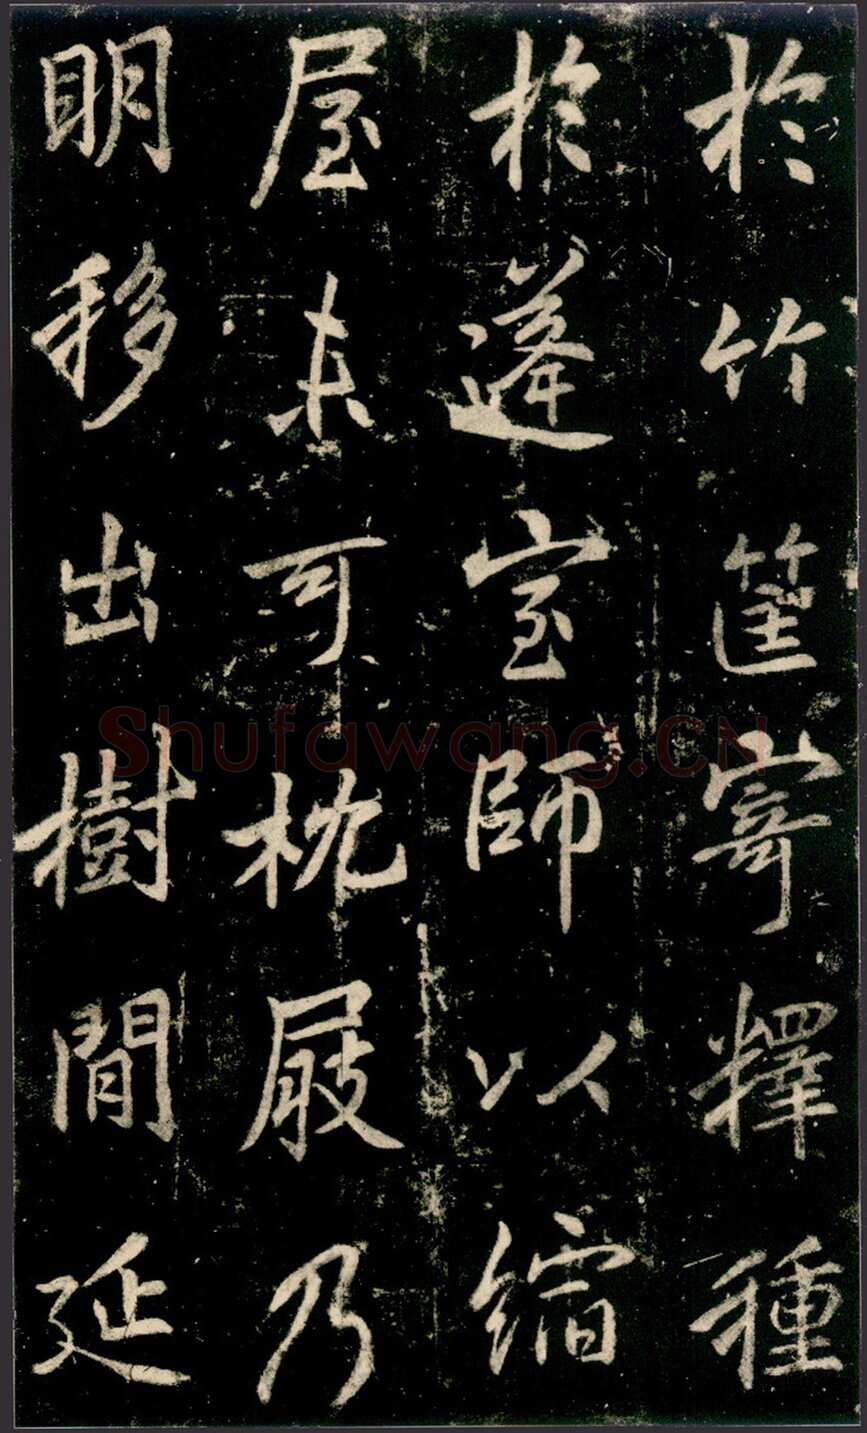 於竹筐寄釋種
於蓬室師以縮
屋未可枕屐乃
明移出樹間延
Shufawang.CN